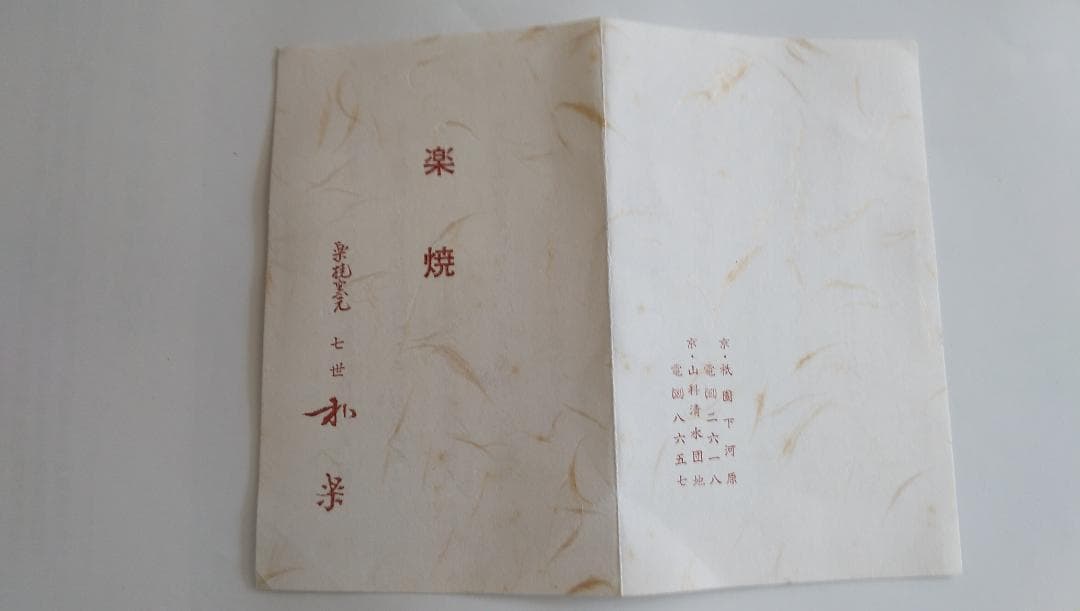 楽焼
楽焼窯元 七世 和楽
京・祇園下河原
電 二六一八
京・山科清水団地
電 八六五七